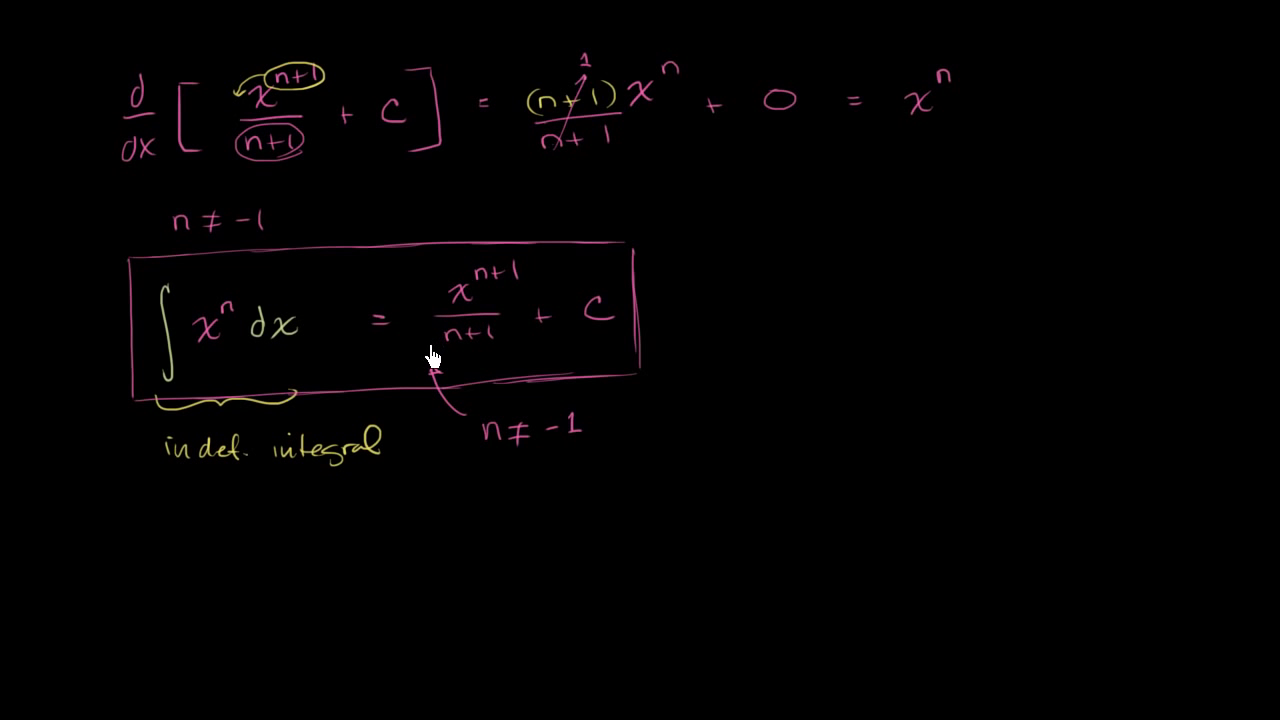 d/dx [ x^(n+1)/(n+1) + C ] = (n+1)x^n/(n+1) + 0 = x^n
1
n ≠ -1
∫ x^n dx = x^(n+1)/(n+1) + C
indef. integral
n ≠ -1